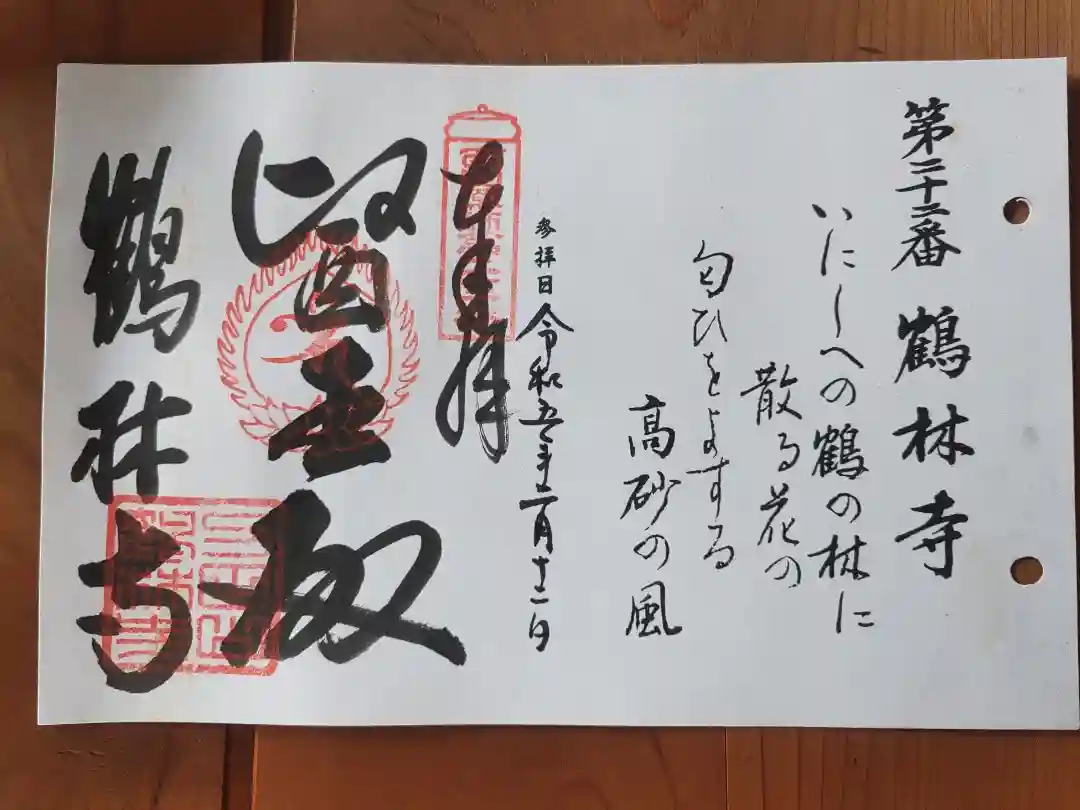 第二十二番 鶴林寺
いにしへの鶴の林に
散る花の
匂ひをよする
高砂の風
参拝日 令和五年二月十二日
奉拝
醫王殿
鶴林寺